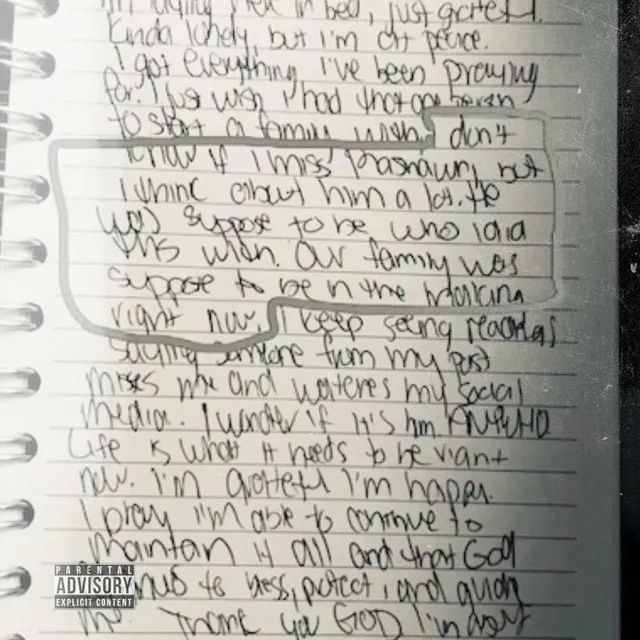 I'm laying here in bed, just grateful.
Kinda lonely but i'm at peace.
I got everything i've been praying
for. I just wish I had that one person
to start a family with. I don't
know if I miss Rashawn, but
I think about him a lot. He
was suppose to be who i did
this with. Our family was
suppose to be in the making
right now. I keep seeing readings
saying someone from my past
misses me and watches my social
media. I wonder if it's him. ANYWHO
Life is what it needs to be right
now. i'm grateful i'm happy.
I pray i'm able to continue to
maintain it all and that God
to bless, protect, and guide
me. Thank you GOD I'm
PARENTAL
ADVISORY
EXPLICIT CONTENT